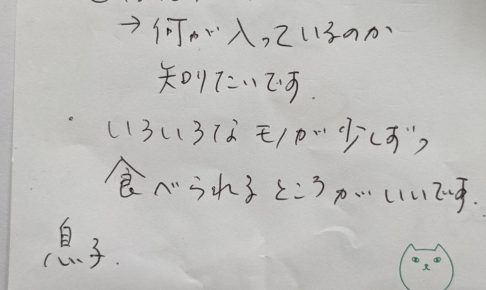 →何が入っているのか
知りたいです.
・いろいろなモノが少しずつ
食べられるところがいいです.
息子.